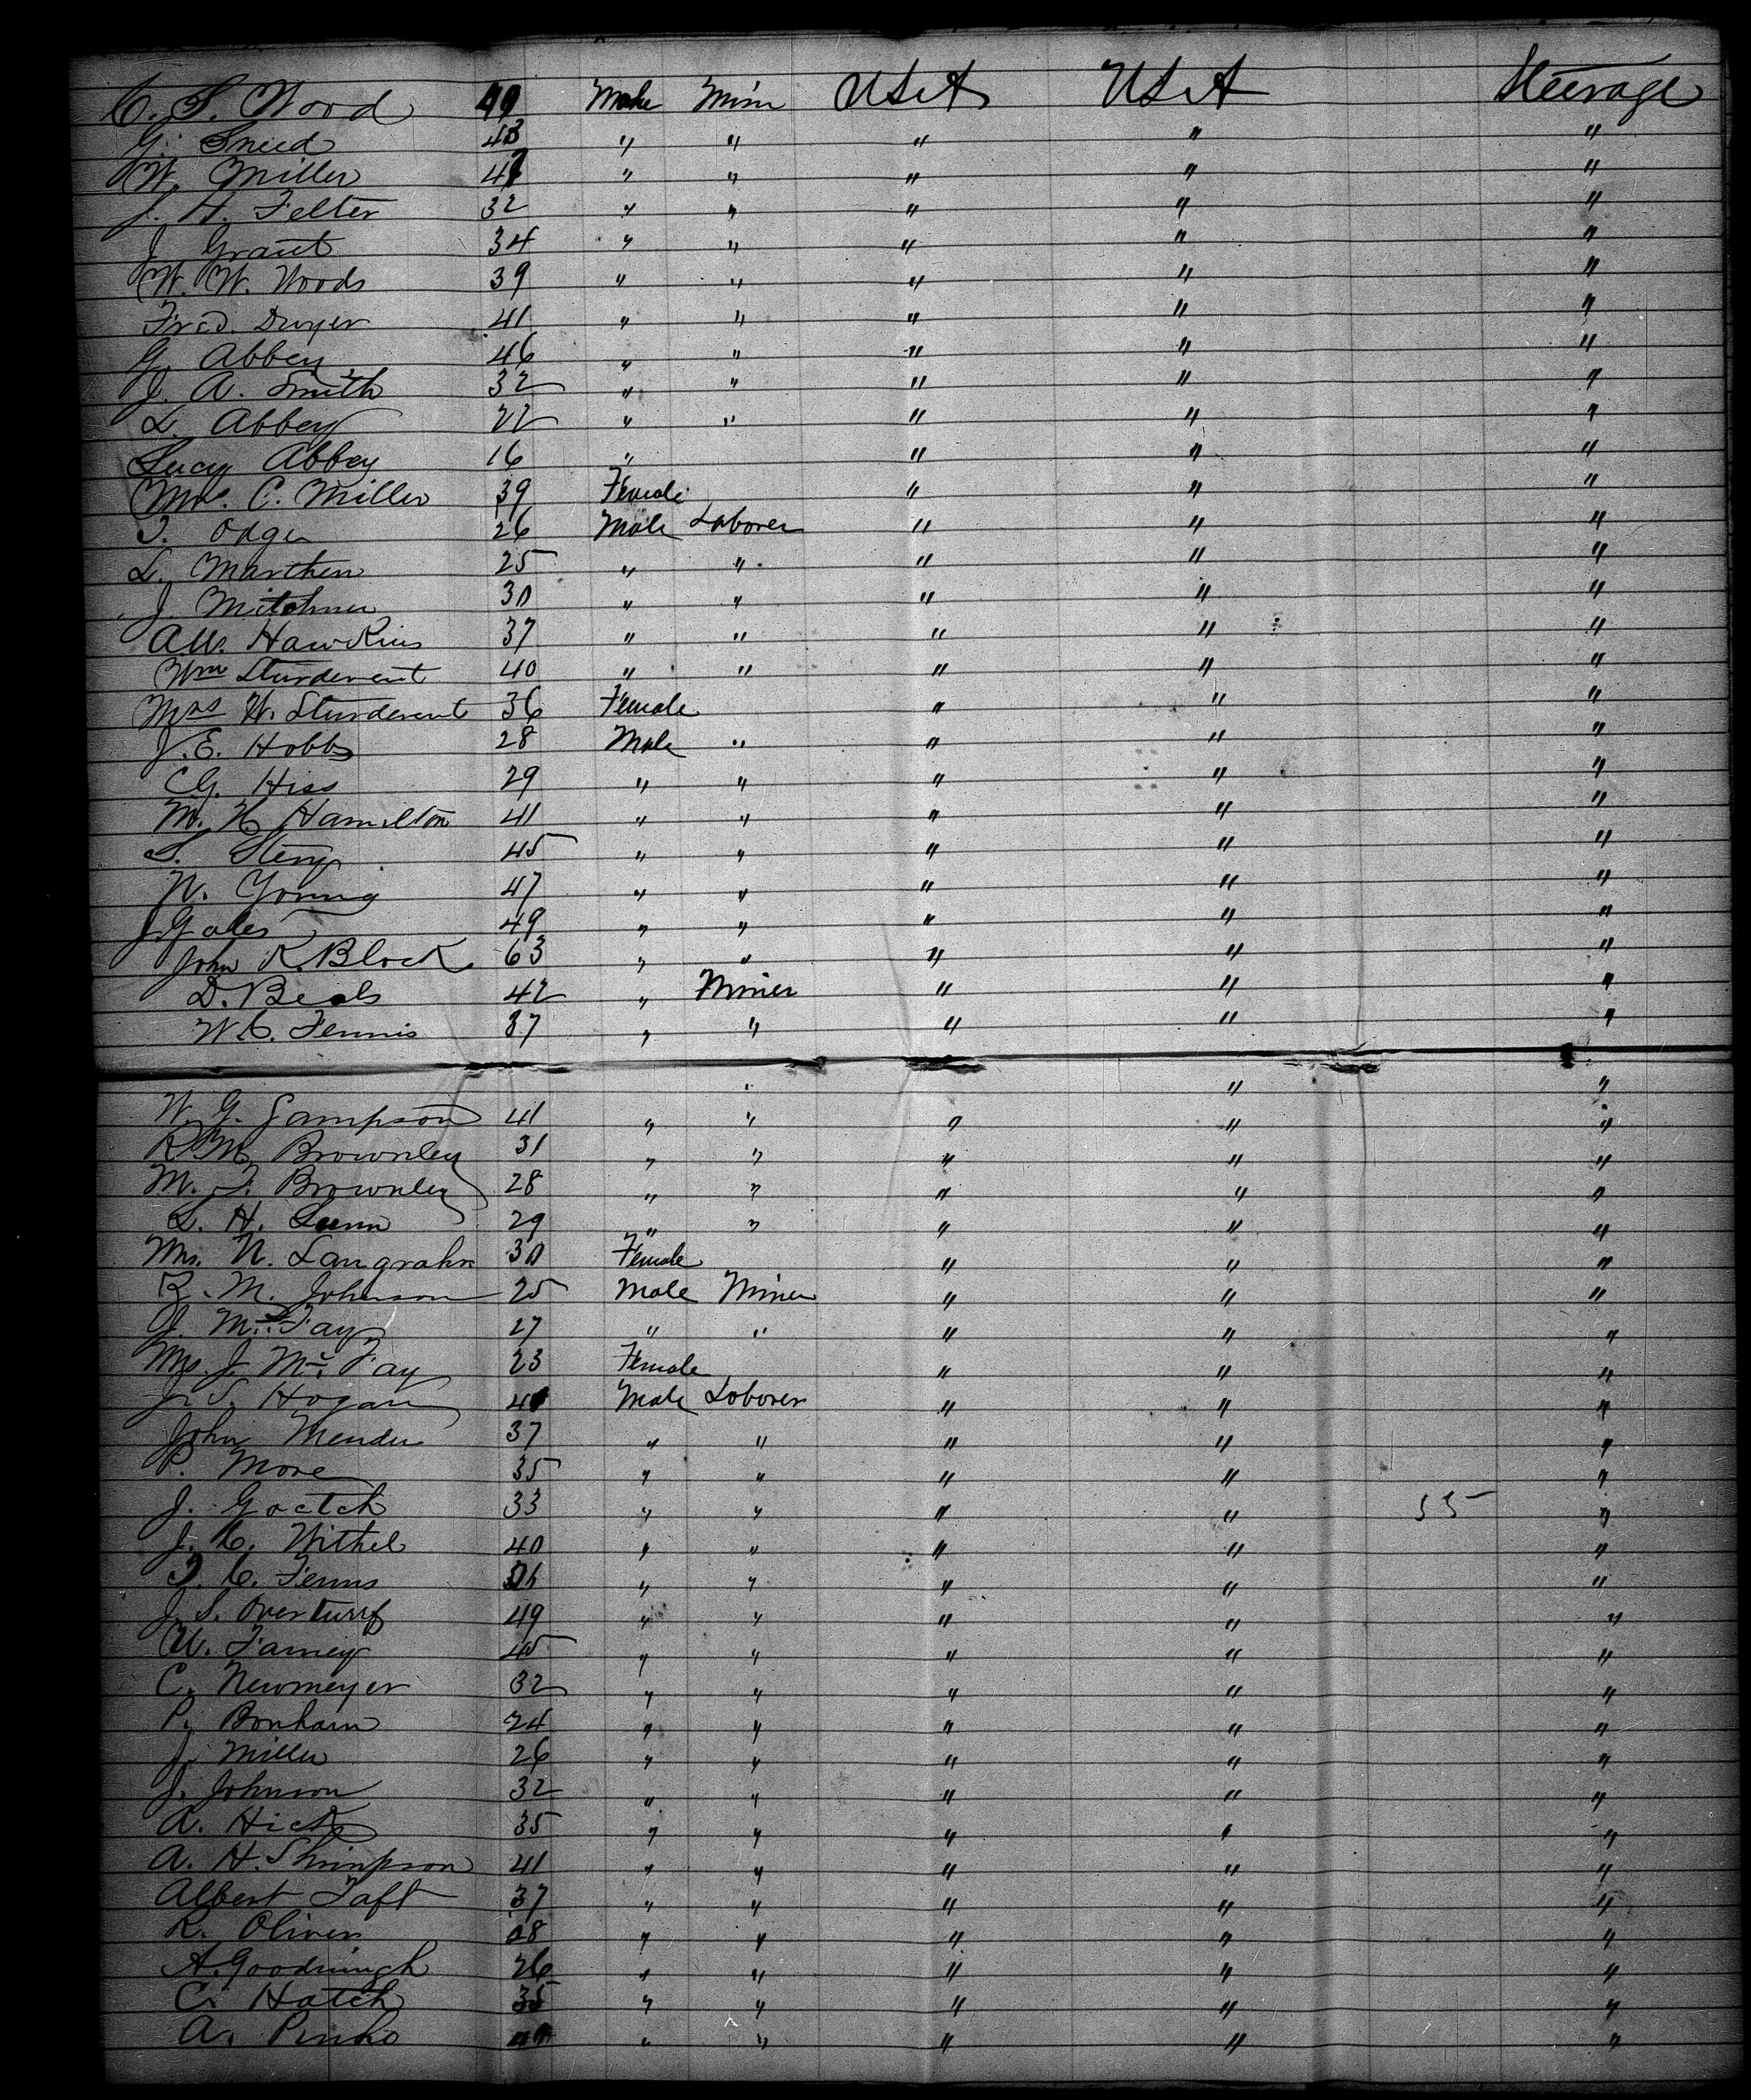 C. S. Wood Male Miner USA USA Steerage
G. Sneed 43 " " " " "
W. Miller " " " " "
J. H. Felter 32 " " " " "
J Grant 34 " " " " "
W. W. Woods 39 " " " " "
Fred. Dwyer 41 " " " " "
G. Abbey 46 " " " " "
J. A. Smith 32 " " " " "
L. Abbey 22 " " " " "
Lucy Abbey 16 " " " "
Mrs. C. Miller 39 Female " " "
26 Male Laborer " " "
L. Marthen 25 " " " " "
J. Mitchner 30 " " " " "
A.W. Hawkins 37 " " " " "
Wm Sturdevent 40 " " " " "
Mrs W. Sturdevent 36 Female " " "
J. E. Hobbs 28 Male " " " "
C.G. Hiss 29 " " " " "
M. H. Hamilton 41 " " " " "
S. 45 " " " " "
W. Young 47 " " " " "
J. Gales 49 " " " " "
John K. Block 63 " " " " "
D. Beals 42 " Miner " " "
W. C. Fennis 37 " " " " "
" " "
W. G. Sampson 41 " " " " "
R M Brownley 31 " " " " "
M. F. Brownley 28 " " " " "
L. H. Lunn 29 " " " " "
Mrs. N. Langrahn 30 Female " " "
R. M. Johnson 25 Male Miner " " "
J. Mc. Fay 27 " " " " "
Mrs. J. Mc. Fay 23 Female " " "
J. S. Hogan Male Laborer " " "
John Mender 37 " " " " "
P. More 35 " " " " "
J. Goetch 33 " " " " 55 "
J. C. Withel 40 " " " " "
T. C. Fenns " " " " "
J. S. Overturf 49 " " " " "
W. Farney 45 " " " " "
C. Newmeyer 32 " " " " "
P. Bonham 24 " " " " "
J. Miller 26 " " " " "
J. Johnson 32 " " " " "
A. Hick 35 " " " " "
A. H. Shimpson 41 " " " " "
Albert Taft 37 " " " " "
R. Oliver 28 " " " " "
A. 26 " " " " "
C. Hatch 35 " " " " "
A. " " " " "